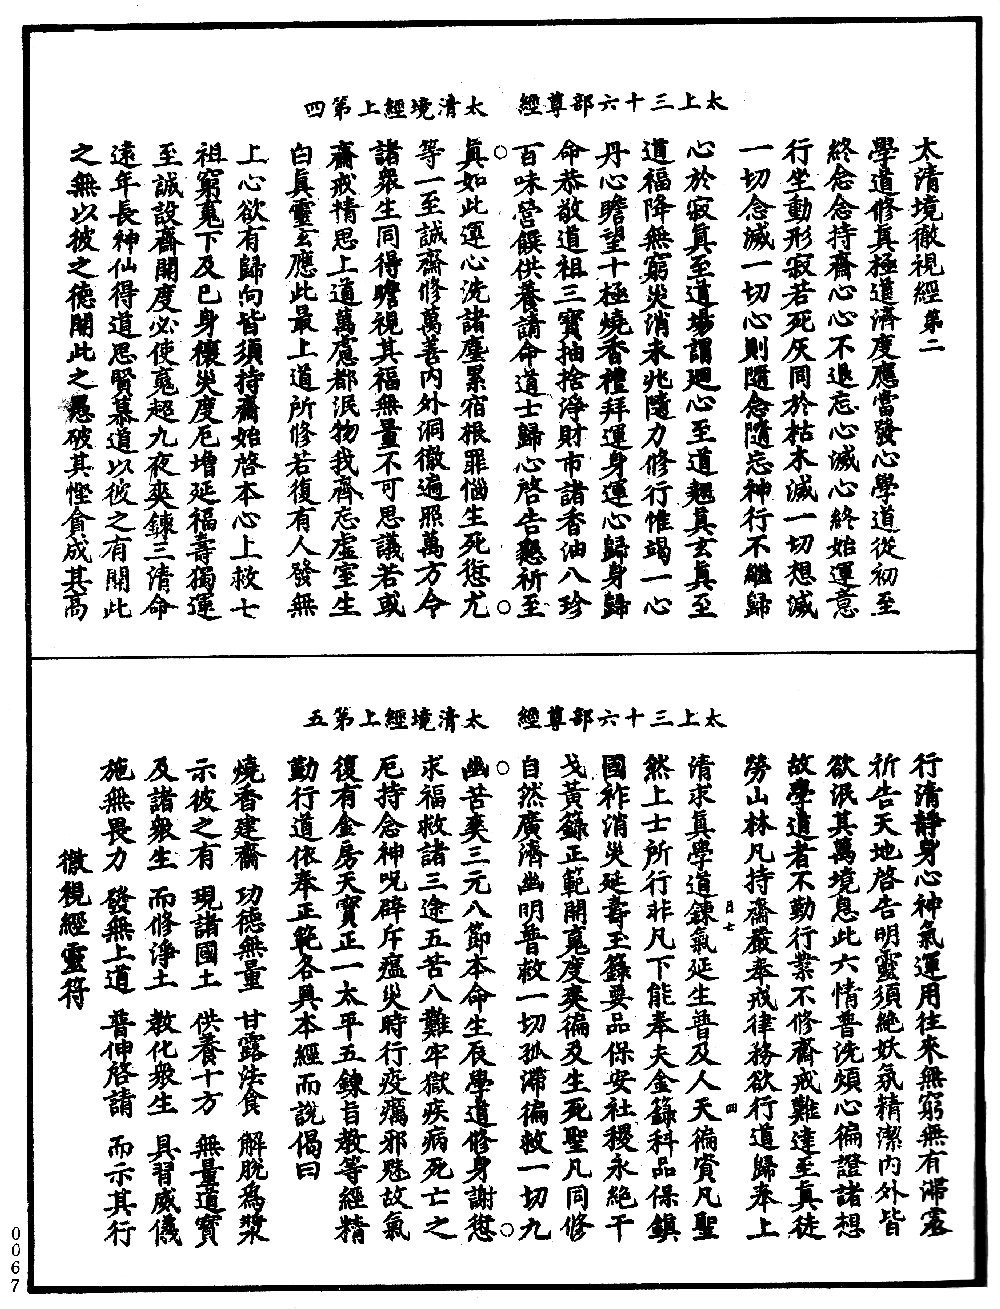 太上三十六部尊經 太清境經上第四
太清境徹視經第二
學道修真極道濟度應當發心學道從初至
終念念持齋心心不退忘心滅心終始運意
行坐動形寂若死灰同於枯木滅一切想滅
一切念滅一切心則隨念隨忘神行不繼歸
心於寂真至道場謂迴心至道趣真玄真至
道福降無窮災消未兆隨力修行惟竭一心
丹心瞻望十極燒香禮拜運身運心歸身歸
命恭敬道祖三寶抽捨淨財市諸香油八珍
百味營饌供養請命道士歸心啓告懇祈至
真如此運心洗諸塵累宿根罪惱生死愆尤
等一至誠齋修萬善內外洞徹遍照萬方令
諸衆生同得瞻視其福無量不可思議若或
齋戒精思上道萬慮都泯物我齊忘虛室生
白真靈玄應此最上道所修若復有人發無
上心欲有歸向皆須持齋始啓本心上救七
祖窮䰟下及已身禳災度厄增延福壽獨運
至誠設齋開度必使䰟超九夜爽鍊三清命
遠年長神仙得道思賢慕道以彼之有開此
之無以彼之德開此之愚破其慳貪成其高
太上三十六部尊經 太清境經上第五
行清靜身心神氣運用往來無窮無有滯㝵
祈告天地啓告明靈須絶妖氛精潔內外皆
欲泯其萬境息此六情普洗煩心徧證諸想
故學道者不勤行業不修齋戒難達至真徒
勞山林凡持齋嚴奉戒律務欲行道歸奉上
清求真學道鍊氣延生普及人天徧資凡聖
然上士所行非凡下能奉夫金籙科品保鎮
國祚消災延壽玉籙要品保安社稷永絶干
戈黃籙正範開䰟度爽徧及生死聖凡同修
自然廣濟幽明普救一切孤滯徧救一切九
幽苦爽三元八節本命生辰學道修身謝愆
求福救諸三途五苦八難牢獄疾病死亡之
厄持念神呪辟斥瘟災時行疫癘邪魅故氣
復有金房天寶正一太平五鍊旨教等經精
勤行道依奉正範各具本經而說偈曰
燒香建齋 功德無量 甘露法食 解脫爲漿
示彼之有 現諸國土 供養十方 無量道寶
及諸衆生 而修淨土 教化衆生 具習威儀
施無畏力 發無上道 普伸啓請 而示其行
徹視經靈符
月七
四
0067